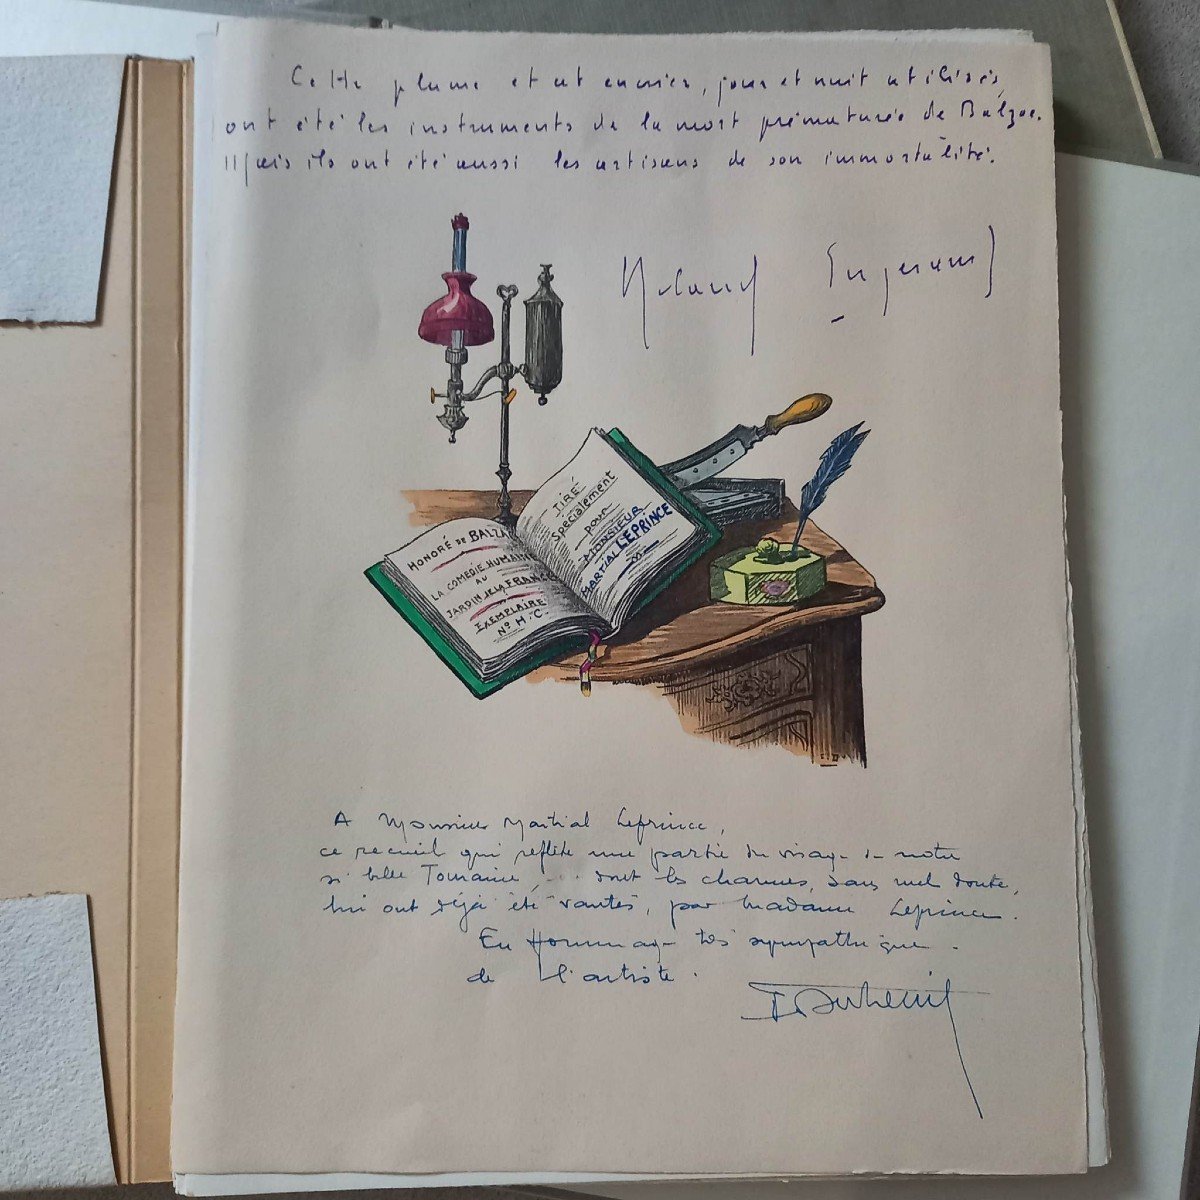 Cette plume et cet encrier, jour et nuit utilisés,
ont été les instruments de la mort prématurée de Balzac.
Mais ils ont été aussi les artisans de son immortalité.
Roland Engerand
HONORÉ DE BALZAC
LA COMEDIE HUMAINE
AU
JARDIN DE LA FRANCE
EXEMPLAIRE
No H.C.
TIRÉ
Spécialement
pour
MONSIEUR
MARTIAL LEPRINCE
A Monsieur Martial Leprince,
ce recueil qui reflète une partie du visage de notre
si belle Touraine, ... dont les charmes, sans nul doute,
lui ont déjà été vantés, par Madame Leprince.
En Hommage très sympathique
de l'artiste.